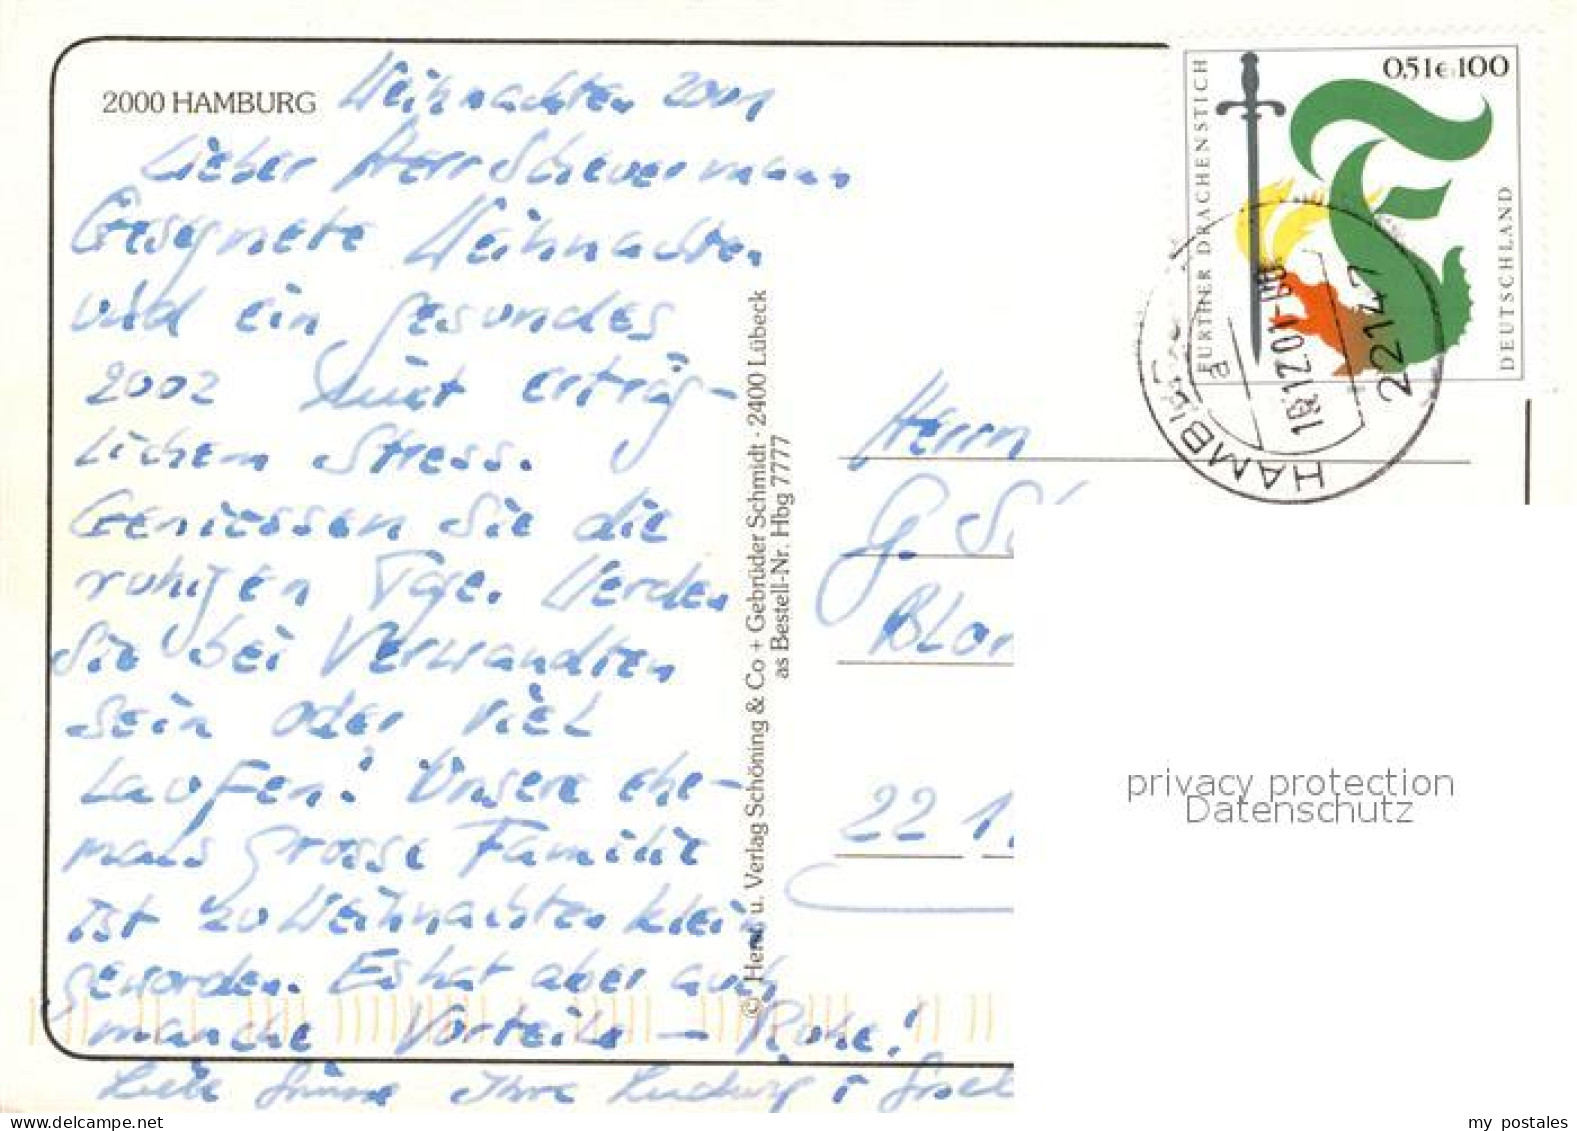 2000 HAMBURG Weihnachten 2001
Lieber Herr Scheuermann
Gesegnete Weihnachten
und ein gesundes
2002 mit erträg-
lichem Stress.
Geniessen Sie die
ruhigen Tage. Werden
Sie bei Verwandten
sein oder viel
laufen? Unsere ehe-
mals grosse Familie
ist zu Weihnachten klein
geworden. Es hat aber auch
manche Vorteile – Ruhe!
Liebe Grüsse Ihre Ludwig
© Herst. u. Verlag Schöning & Co + Gebrüder Schmidt · 2400 Lübeck
as Bestell-Nr. Hbg 7777
FURTHER DRACHENSTICH
0,51€ 100
DEUTSCHLAND
HAMBURG
a
18.12.01-
22147
Herrn
G.
22 1
privacy protection
Datenschutz
my postales